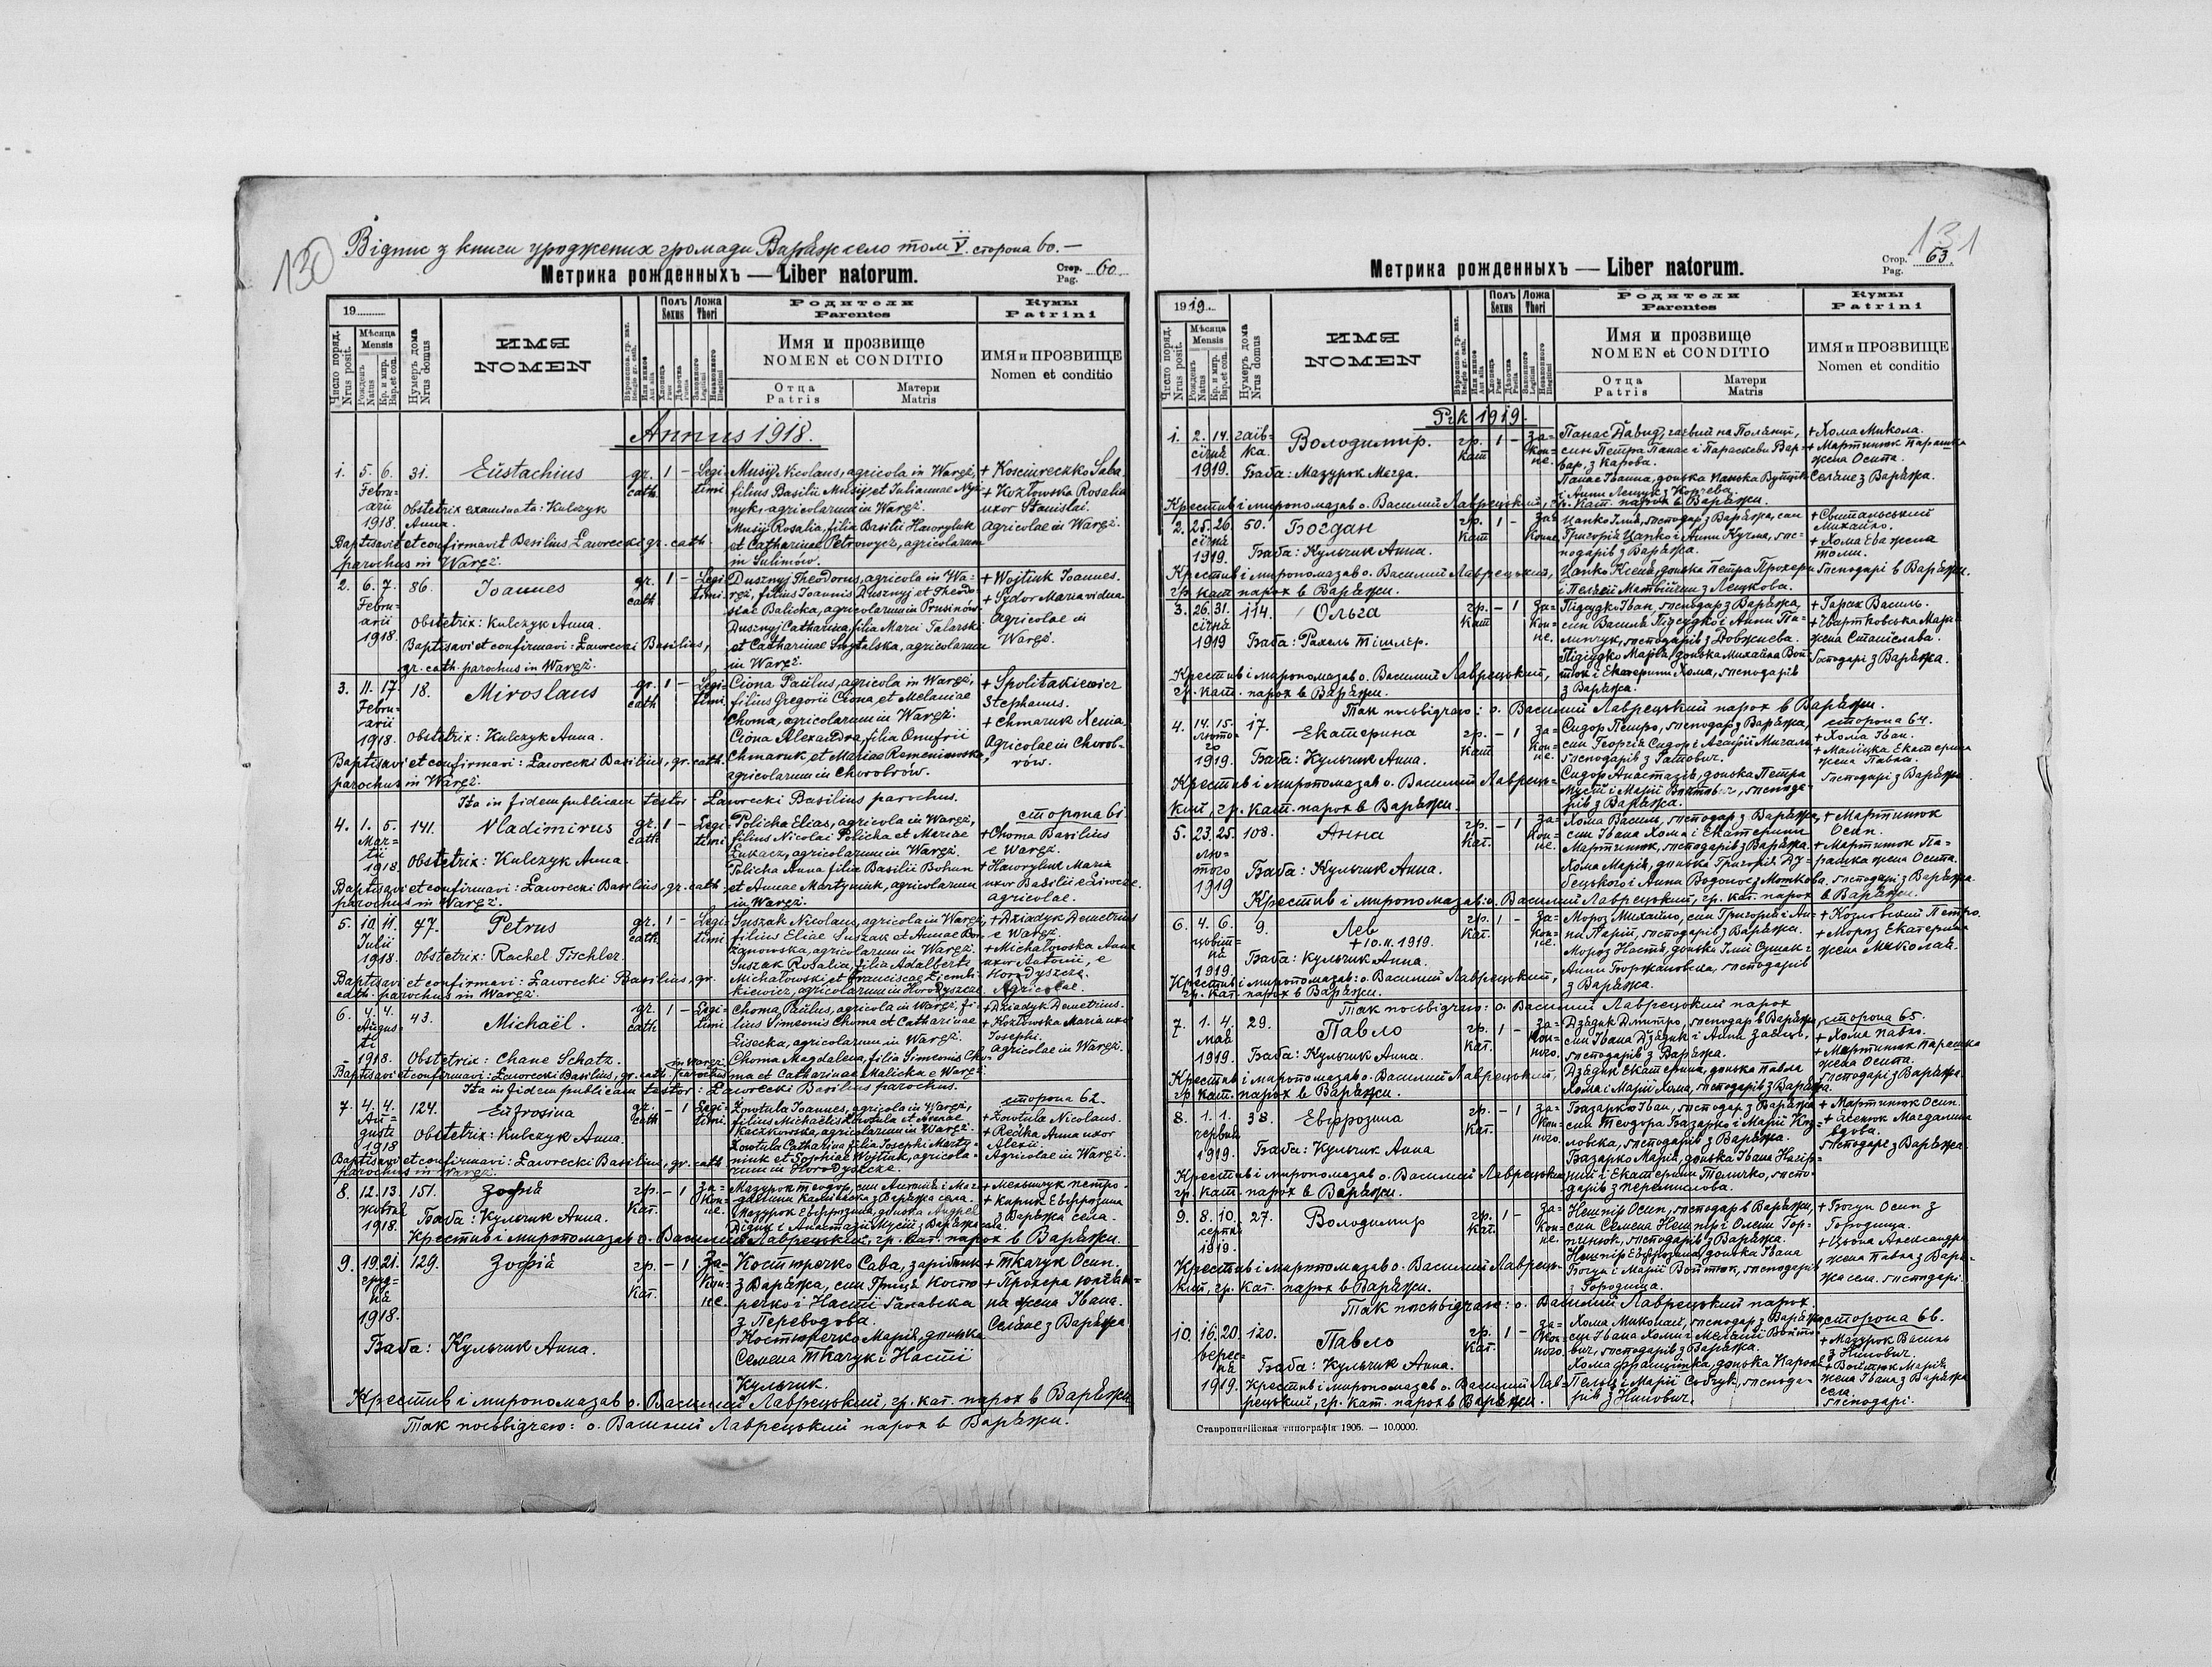 130
Відпис з книги уроджених громади Варяж село том V. сторона 60.—
Метрика рожденныхъ — Liber natorum.
Стор. Pag. 60
19
Число поряд. Nrus posit.
Мѣсяца Mensis
Рожденъ Natus
Кр. и мир. Bap. et con.
Нумеръ дома Nrus domus
ИМЯ
NOMEN
Полъ Sexus
Ложа Thori
Родители
Parentes
Имя и прозвище
NOMEN et CONDITIO
Отца Patris
Матери Matris
Кумы
Patrini
ИМЯ и ПРОЗВИЩЕ
Nomen et conditio
Annus 1918.
1. 5. 6. Februarii 1918. 31. Eustachius gr. cath. 1 – Legitimi
Musij Nicolaus, agricola in Waręż,
filius Basilii Musij et Iuliannae
agricolarum in Waręż.
Musij Rosalia, filia Basilii Hawryluk
et Catharinae Petrowycz, agricolarum
in Sulimów.
+ Kosciureczko Saba
+ Kozłowska Rosalia
uxor Stanislai.
Agricolae in Waręż.
Obstetrix examinata: Kulczyk
Anna.
Baptisavit et confirmavit Basilius Ławrecki gr. cath.
parochus in Waręż.
2. 6. 7. Februarii 1918. 86. Joannes gr. cath 1 – Legitimi.
Dusznyj Theodorus, agricola in Wa=
ręż, filius Joannis Dusznyj et Theodo=
siae Balicka, agricolarum in Prusinów.
Dusznyj Catharina, filia Marci Talarski
et Catharinae agricolarum
in Waręż.
+ Wojtiuk Joannes.
+ Sydor Maria vidua
Agricolae in
Waręż.
Obstetrix: Kulczyk Anna.
Baptisavi et confirmavi: Ławrecki Basilius,
gr. cath. parochus in Waręż.
3. 11. 17. Februarii 1918. 18. Miroslaus gr. cath 1 – Legitimi
Ciona Paulus, agricola in Waręż,
filius Gregorii Ciona et Melaniae
Choma, agricolarum in Waręż.
Ciona Alexandra, filia Onufrii
Chmaruk et Mariae
agricolarum in Chorobrów.
+ Spolitakiewicz
Stephanus.
+ Chmaruk Xenia,
Agricolae in Chorob=
rów.
Obstetrix: Kulczyk Anna.
Baptisavi et confirmavi: Ławrecki Basilius, gr. cath.
parochus in Waręż.
Ita in fidem publicam testor: Ławrecki Basilius parochus.
сторона 61
4. 1. 5. Martii 1918. 141. Vladimirus gr. cath 1 – Legitimi
Policha Elias, agricola in Waręż,
filius Nicolai Policha et Mariae
Łukacz, agricolarum in Waręż.
Policha Anna filia Basilii Bohun
et Annae Martyniuk, agricolarum
in Waręż.
+ Choma Basilius
e Waręż.
+ Hawryluk Maria
uxor Basilii e Liwcze.
agricolae.
Obstetrix: Kulczyk Anna.
Baptisavi et confirmavi: Ławrecki Basilius, gr. cath
parochus in Waręż.
5. 10. 11. Julii 1918. 47. Petrus gr. cath 1 – Legitimi
Suszak Nicolaus, agricola in Waręż,
filius Eliae Suszak et Annae Bor=
żanowska, agricolarum in Waręż.
Suszak Rosalia, filia Adalberti
Michałowski et Franciscae Ziembi=
kiewicz, agricolarum in Horodyszcze
+ Dziadyk Demetrius
e Waręż.
+ Michałowska Anna
uxor Antonii, e
Horodyszcza.
Agricolae.
Obstetrix: Rachel Tischler.
Baptisavi et confirmavi: Ławrecki Basilius, gr.
cath. parochus in Waręż.
6. 4. 4. Augusti 1918. 43. Michaël. gr. cath 1 – Legitimi
Choma Paulus, agricola in Waręż, fi=
lius Simeonis Choma et Catharinae
Lisecka, agricolarum in Waręż.
Choma Magdalena, filia Simeonis Cho=
ma et Catharinae Malicka e Waręż
+ Dziadyk Demetrius.
+ Kozłowska Maria uxor
Josephi.
Agricolae in Waręż.
Obstetrix: Chane Schatz.
Baptisavi et confirmavi: Ławrecki Basilius, gr. cath. parochus in Waręż
Ita in fidem publicam testor: Ławrecki Basilius parochus.
сторона 62
7. 4. 4. Augusti 1918 124. Eufrosina gr. cath – 1 Legitimi.
Żowtula Joannes, agricola in Waręż,
filius Michaelis Żowtula et Annae
Kaczkowska, agricolarum in Waręż.
Żowtula Catharina filia Josephi Marty=
niuk et Sophiae Wojtiuk, agricola=
rum in Horodyszcze.
+ Żowtula Nicolaus.
+ Redka Anna uxor
Alexii.
Agricolae in Waręż.
Obstetrix: Kulczyk Anna.
Baptisavi et confirmavi: Ławrecki Basilius, gr. cath
parochus in Waręż.
8. 12. 13 жовтня 1918. 151. Зофія гр. кат. – 1 Законне.
Мазурок Теодор, син Антонія і Маг=
далини з Варяжа села.
Мазурок Евфрозина, донька Андрея
Дідик і Анастазії Мусій з Варяжа села.
+ Меньшук Петро
+ Кирик Евфрозина
з Варяжа села.
Баба: Кульчик Анна.
Крестив і миропомазав о. Василий Лаврецький, гр. кат. парох в Варяжи.
9. 19. 21. грудня 1918. 129. Зофія гр. кат. – 1 Законне.
Костюречко Сава, зарібник
з Варяжа, син Гриця Костю
речко і Насті Галавська
з Переводова.
Костюречко Марія, донька
Семена Ткачук і Насті
Кульчик.
+ Ткачук Осип.
+ Прохера
на жена Івана.
Селяне з Варяжа
Баба: Кульчик Анна.
Крестив і миропомазав о. Василий Лаврецький, гр. кат. парох в Варяжи
Так посвідчаю: о. Василий Лаврецький парох в Варяжи.
131
Метрика рожденныхъ — Liber natorum.
Стор. Pag. 63.
1919.
Число поряд. Nrus posit.
Мѣсяца Mensis
Рожденъ Natus
Кр. и мир. Bap. et con.
Нумеръ дома Nrus domus
ИМЯ
NOMEN
Полъ Sexus
Ложа Thori
Родители
Parentes
Имя и прозвище
NOMEN et CONDITIO
Отца Patris
Матери Matris
Кумы
Patrini
ИМЯ и ПРОЗВИЩЕ
Nomen et conditio
Рік 1919.
1. 2. 14. січня 1919. гаївка. Володимир. гр. кат 1 – Законне.
Панас Давид, гаєвий на Полянці,
син Петра Панас і Параскеви Вар=
вар, з Карова.
Панас Іванна, донька Панька
і Анни Лещук з Корчева.
+ Хома Микола.
+ Мартинюк Парашка
жена Осипа.
Селяне з Варяжа.
Баба: Мазурок Магда.
Крестив і миропомазав о. Василий Лаврецький, гр. кат. парох в Варяжи.
2. 25. 26. січня 1919. 50. Богдан гр. кат 1 – Законне
Цапко Ілия, господар з Варяжа, син
Григорія Цапко і Анни Кучма, гос=
подарів з Варяжа.
Цапко Ксеня, донька Петра Прохери
і Пелагії Матвійчин з Лешкова.
+ Свитальський
Михайло.
+ Хома Ева жена
Томи.
Господарі в Варяжи.
Баба: Кульчик Анна.
Крестив і миропомазав о. Василий Лаврецький,
гр. кат парох в Варяжи.
3. 26. 31. січня 1919 114. Ольга гр. кат – 1 Законне.
Підсудко Іван, господар з Варяжа,
син Василя Підсудко і Анни Па=
линчук, господарів з Довжнева.
Підсудко Марія, донька Михайла Вой=
тюк і Екатерини Хома, господарів
з Варяжа.
+ Гарах Василь.
+ Чвартковська Марія
жена Станіслава.
Господарі з Варяжа.
Баба: Рахель Тішлєр.
Крестив і миропомазав о. Василий Лаврецький,
гр. кат. парох в Варяжи.
Так посвідчаю: о. Василий Лаврецький парох в Варяжи.
сторона 64.
4. 14. 15. лютого 1919. 17. Екатерина гр. кат – 1 Законне.
Сидор Петро, господар з Варяжа,
син Георгія Сидор і Агафії Мигаль
господарів з Гатович.
Сидор Анастазія, донька Петра
Мусій і Марії Войтович, господа=
рів з Варяжа.
+ Хома Іван.
+ Маліцка Екатерина
жена Павла.
Господарі з Варяжа
Баба: Кульчик Анна.
Крестив і миропомазав о. Василий Лаврець=
кий, гр. кат. парох в Варяжи.
5. 23. 25. лютого 1919 108. Анна гр. кат. – 1 Законне.
Хома Василь, господар з Варяжа,
син Івана Хома і Екатерини
Мартинюк, господарів з Варяжа.
Хома Марія, донька Григорія Ду=
бецького і Анни Водонос з Моткова.
+ Мартинюк
Осип.
+ Мартинюк Па=
рашка жена Осипа.
Господарі з Варяжа
Баба: Кульчик Анна.
Крестив і миропомазав: о. Василий Лаврецький, гр. кат. парох в Варяжи.
6. 4. 6. цьвітня 1919. 9. Лев гр. кат. 1 – Законне.
+ 10.11.1919.
Мороз Михайло, син Григорія і Ан=
ни Парій, господарів з Варяжи.
Мороз Настя, донька Ілиї Сушак і
Анни Боржановська, господарів
з Варяжа.
+ Козловский Петро.
+ Мороз Екатерина
жена Миколая.
Баба: Кульчик Анна.
Крестив і миропомазав: о. Василий Лаврецький,
гр. кат. парох в Варяжи.
Так посвідчаю: о. Василий Лаврецький парох
сторона 65.
7. 1. 4. мая 1919. 29. Павло гр. кат. 1 – Законного.
Дзядик Дмитро, господар в Варяжи,
син Івана Дзядик і Анни Заєць,
господарів з Варяжа.
Дзядик Екатерина, донька Павла
Хома і Марії Хома, господарів з Варяжа.
+ Хома Павло.
+ Мартинюк Парашка
жена Осипа.
Господарі з Варяжа.
Баба: Кульчик Анна.
Крестив і миропомазав о. Василий Лаврецький,
гр. кат. парох в Варяжи.
8. 1. 1. червня 1919. 38. Евфрозина гр. кат. – 1 Законного.
Базарко Іван, господар з Варяжа
син Теодора Базарко і Марії Коз=
ловска, господарів з Варяжа.
Базарко Марія, донька Івана Нагір=
ний і Екатерини Теличко, госпо=
дарів з Перемислова.
+ Мартинюк Осип.
+ Магдалина
вдова.
Господарі з Варяжа
Баба: Кульчик Анна
Крестив і миропомазав о. Василий Лаврецький
гр. кат. парох в Варяжи.
9. 8. 10. серпня 1919. 27. Володимир гр. кат. 1 – Законне.
Нецпір Осип, господар в Варяжи,
син Семена Нецпір і Олени Гор=
пинюк, господарів з Варяжа.
Нецпір Евфрозина, донька Івана
Богун і Марії Войтюк, господарів
з Городища.
+ Богун Осип з
Городища.
+ Цьона Александра
жена Павла з Варя=
жа села. Господарі.
Крестив і миропомазав о. Василий Лаврець=
кий, гр. кат. парох в Варяжи.
Так посвідчаю: о. Василий Лаврецький парох.
сторона 66.
10. 16. 20. вересня 1919. 120. Павло гр. кат. 1 – Законного
Хома Миколай, господар з Варяжа,
син Івана Хоми і Меланії Войто=
вич, господарів з Варяжа.
Хома Францішка, донька Кароля
Пельц і Марії Собчук, господа=
рів з Нинович.
+ Мазурок Василь
з Нинович.
+ Войтюк Марія
жена Івана з Варяжа
села.
Господарі.
Баба: Кульчик Анна.
Крестив і миропомазав о. Василий Лав=
рецький, гр. кат. парох в Варяжи.
Ставропигійская типографія 1905. — 10.0000.